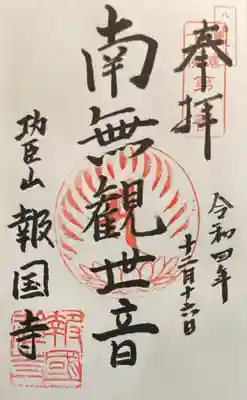 奉拝
令和四年
十二月十六日
南無観世音
功臣山 報国寺
報國